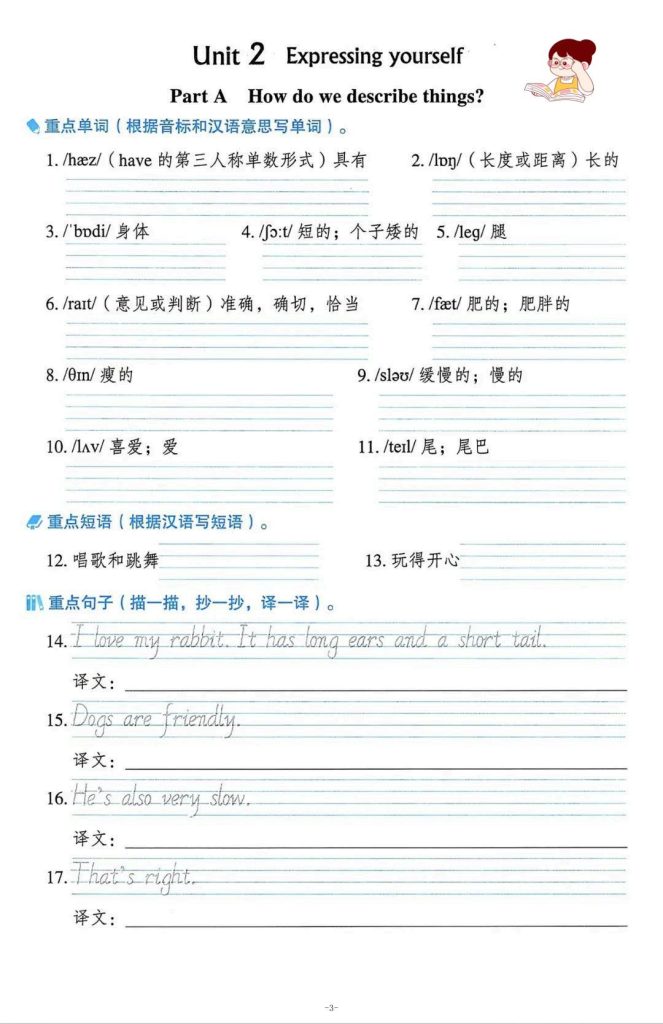 Unit 2 Expressing yourself
Part A How do we describe things?
重点单词（根据音标和汉语意思写单词）。
1. /hæz/（have 的第三人称单数形式）具有 2. /lɒŋ/（长度或距离）长的
3. /ˈbɒdi/ 身体 4. /ʃɔːt/ 短的；个子矮的 5. /leɡ/ 腿
6. /raɪt/（意见或判断）准确，确切，恰当 7. /fæt/ 肥的；肥胖的
8. /θɪn/ 瘦的 9. /sləʊ/ 缓慢的；慢的
10. /lʌv/ 喜爱；爱 11. /teɪl/ 尾；尾巴
重点短语（根据汉语写短语）。
12. 唱歌和跳舞 13. 玩得开心
重点句子（描一描，抄一抄，译一译）。
14. I love my rabbit. It has long ears and a short tail.
译文：
15. Dogs are friendly.
译文：
16. He's also very slow.
译文：
17. That's right.
译文：
-3-